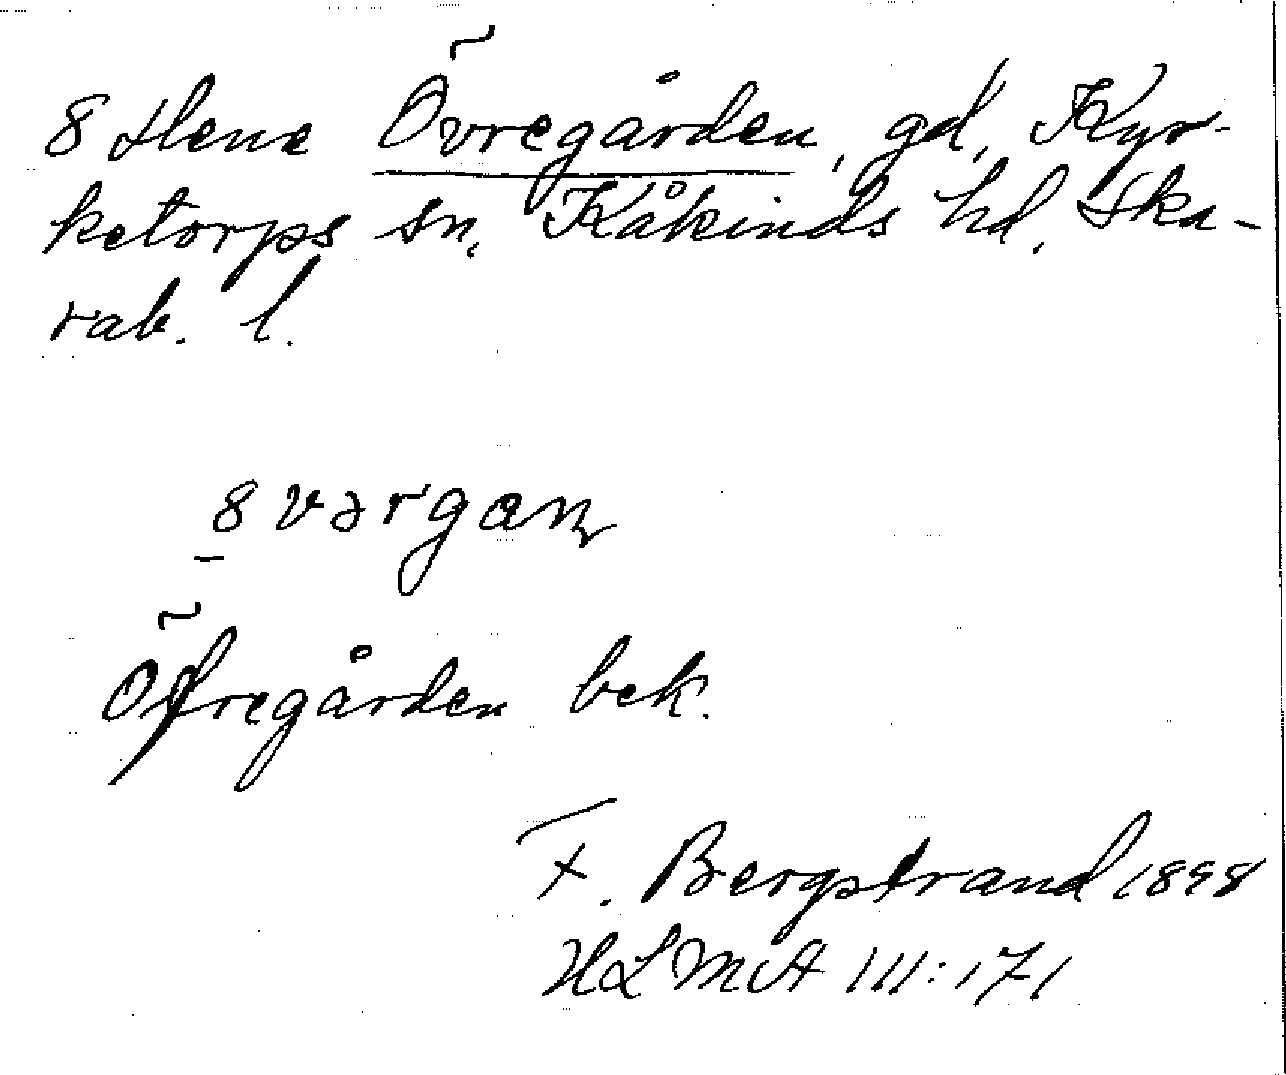 8 Hene Övregården, gd, Kyr-
ketorps sn, Kåkinds hd, Ska-
rab. l.
8 vərgan
Öfregården bek.
F. Bergstrand 1898
HLMA III:171